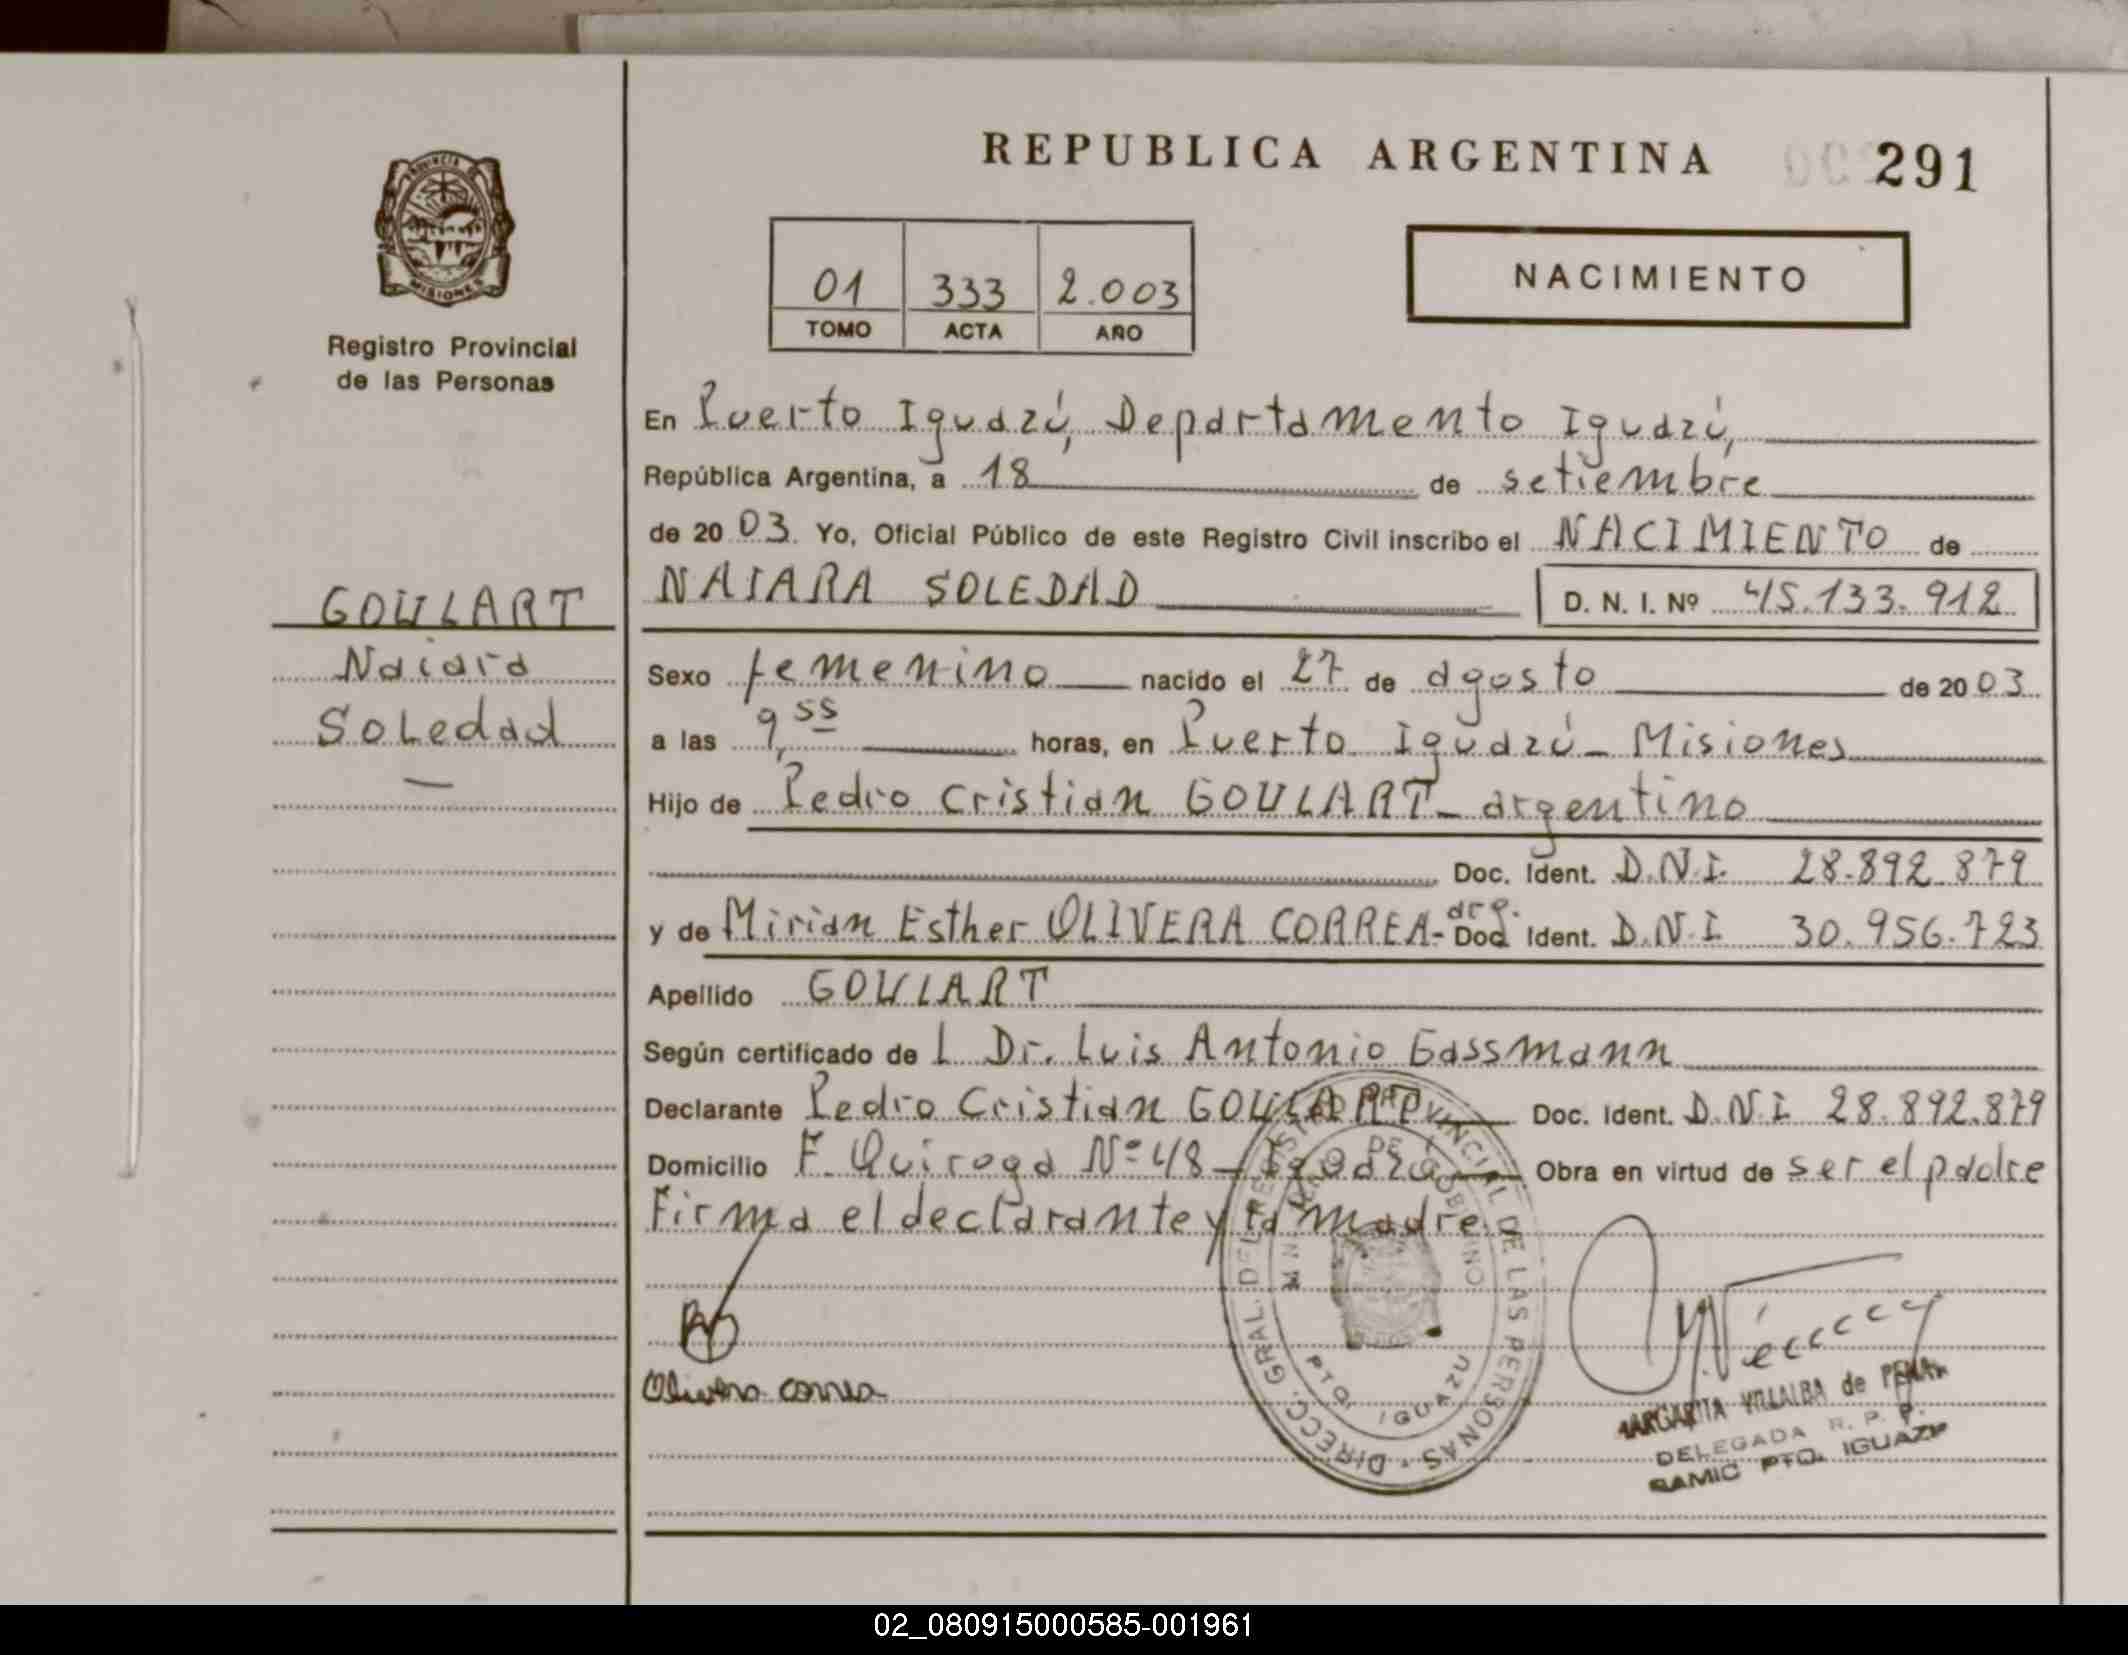 REPUBLICA ARGENTINA
291
PROVINCIA DE
MISIONES
Registro Provincial
de las Personas
01 333 2.003
TOMO ACTA AÑO
NACIMIENTO
En Puerto Iguazú, Departamento Iguazú,
República Argentina, a 18 de setiembre
de 20 03. Yo, Oficial Público de este Registro Civil inscribo el NACIMIENTO de
NAIARA SOLEDAD D. N. I. Nº 45.133.912
GOULART
Naiara
Soledad
Sexo femenino nacido el 27 de agosto de 20 03
a las 9,55 horas, en Puerto Iguazú - Misiones
Hijo de Pedro Cristian GOULART - argentino
Doc. Ident. D.N.I. 28.892.879
y de Mirian Esther OLIVERA CORREA - arg. Doc. Ident. D.N.I 30.956.723
Apellido GOULART
Según certificado de l Dr. Luis Antonio Gassmann
Declarante Pedro Cristian GOULART Doc. Ident. D.N.I. 28.892.879
Domicilio F. Quiroga Nº 48 - Iguazú Obra en virtud de ser el padre
Firma el declarante y la madre.
Olivera correa
DIRECC. GRAL. DEL REGISTRO PROVINCIAL DE LAS PERSONAS
MINISTERIO DE GOBIERNO
PTO. IGUAZU
MARGARITA VILLALBA de PENA
DELEGADA R. P. P.
SAMIC PTO. IGUAZU
02_080915000585-001961